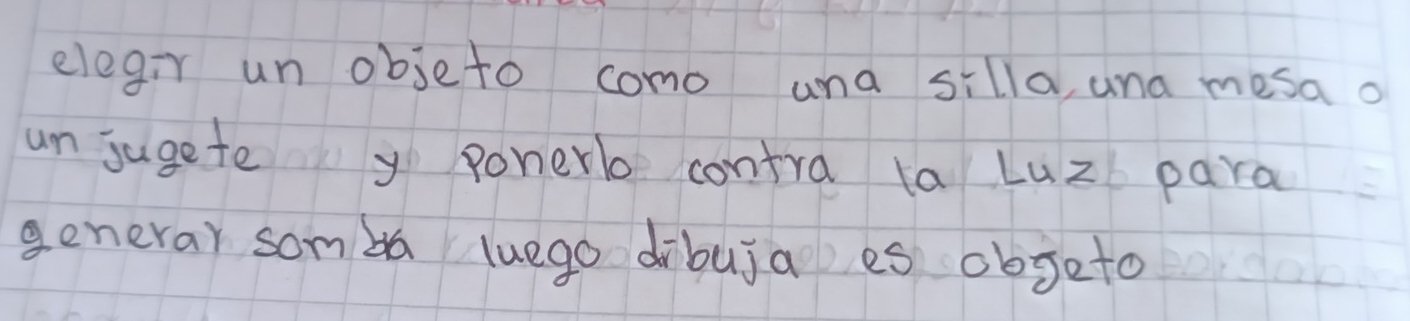 elegir un objeto como una silla, una mesa o
un jugete y ponerlo contra la Luz para
generar somba luego dibuja es objeto